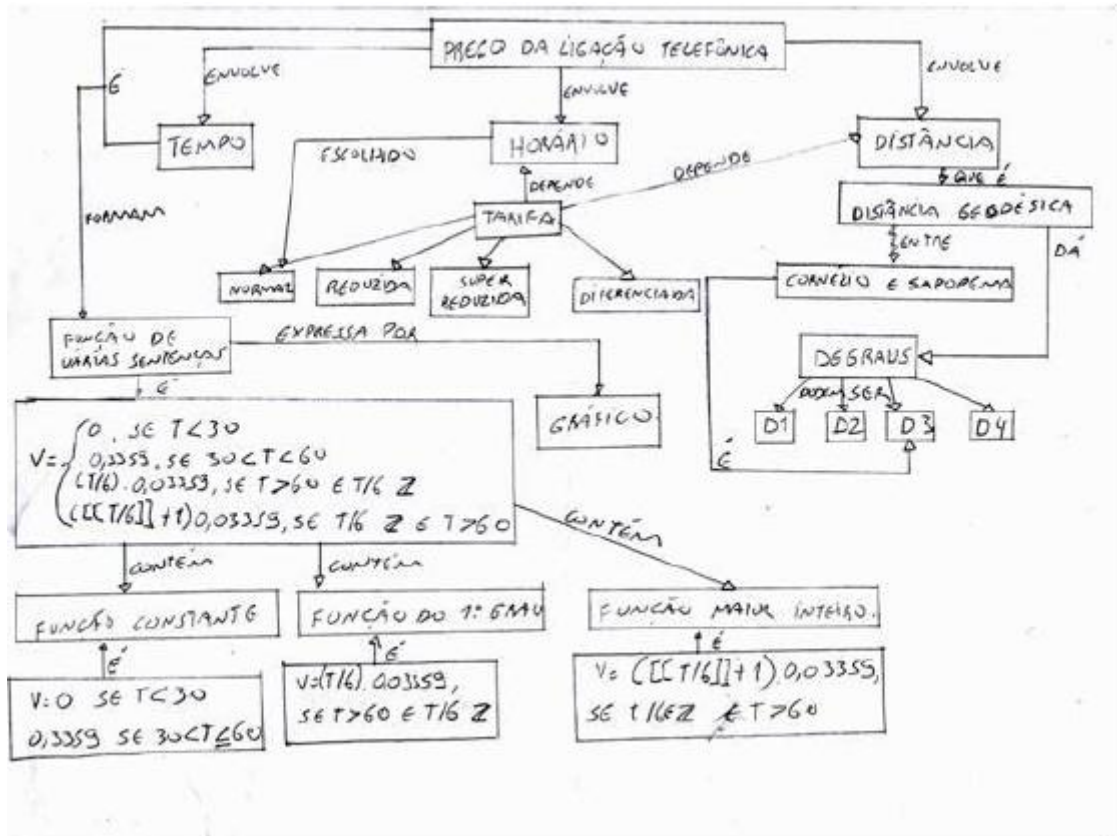 PREÇO DA LIGAÇÃO TELEFÔNICA
É
ENVOLVE
ENVOLVE
ENVOLVE
TEMPO
HORÁRIO
DISTÂNCIA
ESCOLHIDO
DEPENDE
DEPENDE
QUE É
FORMAM
TARIFA
DISTÂNCIA GEODÉSICA
ENTRE
DÁ
NORMAL
REDUZIDA
SUPER
REDUZIDA
DIFERENCIADA
CORNÉLIO E SAPOPEMA
FUNÇÃO DE
VÁRIAS SENTENÇAS
EXPRESSA POR
DEGRAUS
É
PODEM SER
GRÁFICO
D1
D2
D3
D4
É
V= 0, SE T<30
0,3359, SE 30<T<60
(T/6).0,03359, SE T>60 E T/6 Z
([[T/6]]+1)0,03359, SE T/6 Z E T>60
CONTÉM
CONTÉM
CONTÉM
FUNÇÃO CONSTANTE
FUNÇÃO DO 1º GRAU
FUNÇÃO MAIOR INTEIRO.
É
É
É
V=0 SE T<30
0,3359 SE 30<T≤60
V=(T/6).0,03359,
SE T>60 E T/6 Z
V= ([[T/6]]+1).0,03359,
SE T/6∈Z E T>60